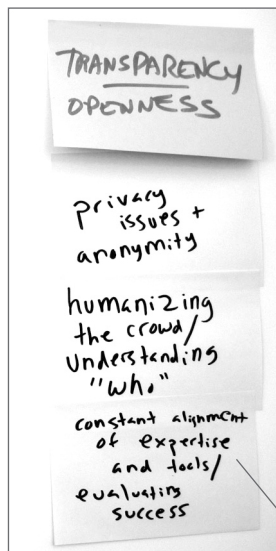 TRANSPARENCY
OPENNESS
privacy
issues +
anonymity
humanizing
the crowd/
understanding
"who"
constant alignment
of expertise
and tools/
evaluating
success